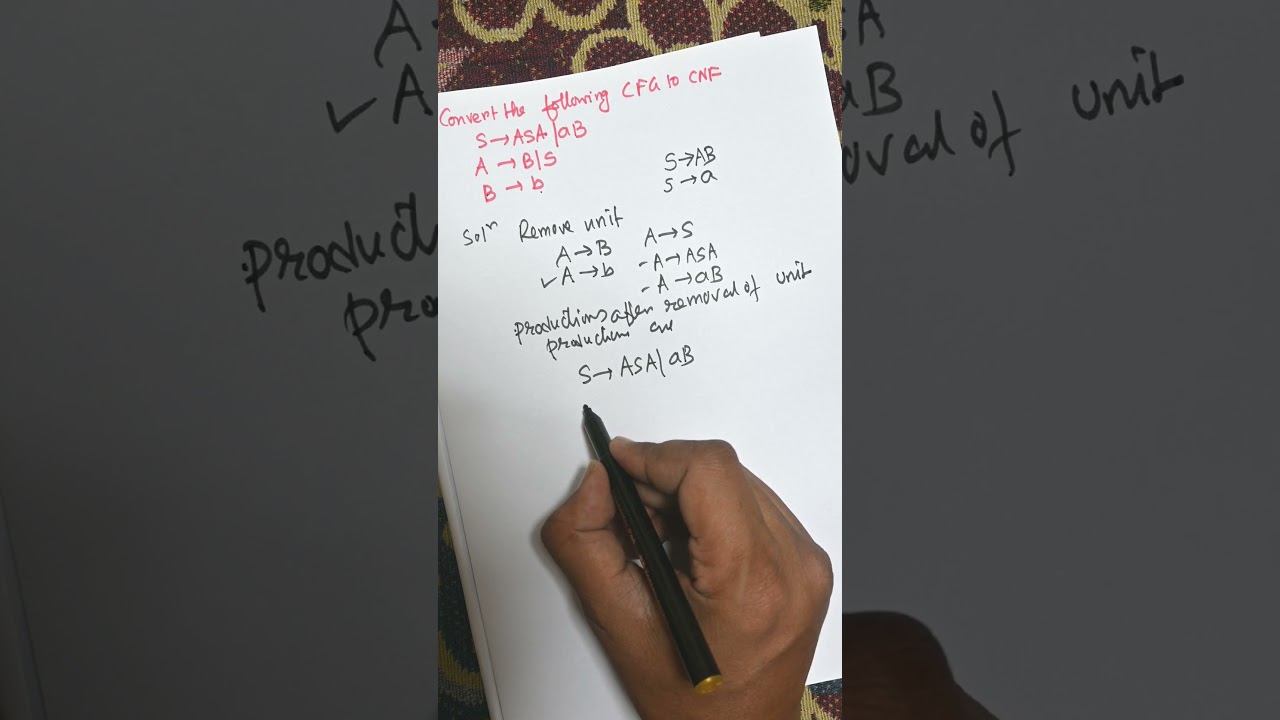 Convert the following CFG to CNF
S→ASA|aB
A→B|S
B→b
S→AB
S→a
Solⁿ Remove unit
A→B
✓A→b
A→S
-A→ASA
-A→aB
productions after removal of unit
productions are
S→ASA|aB